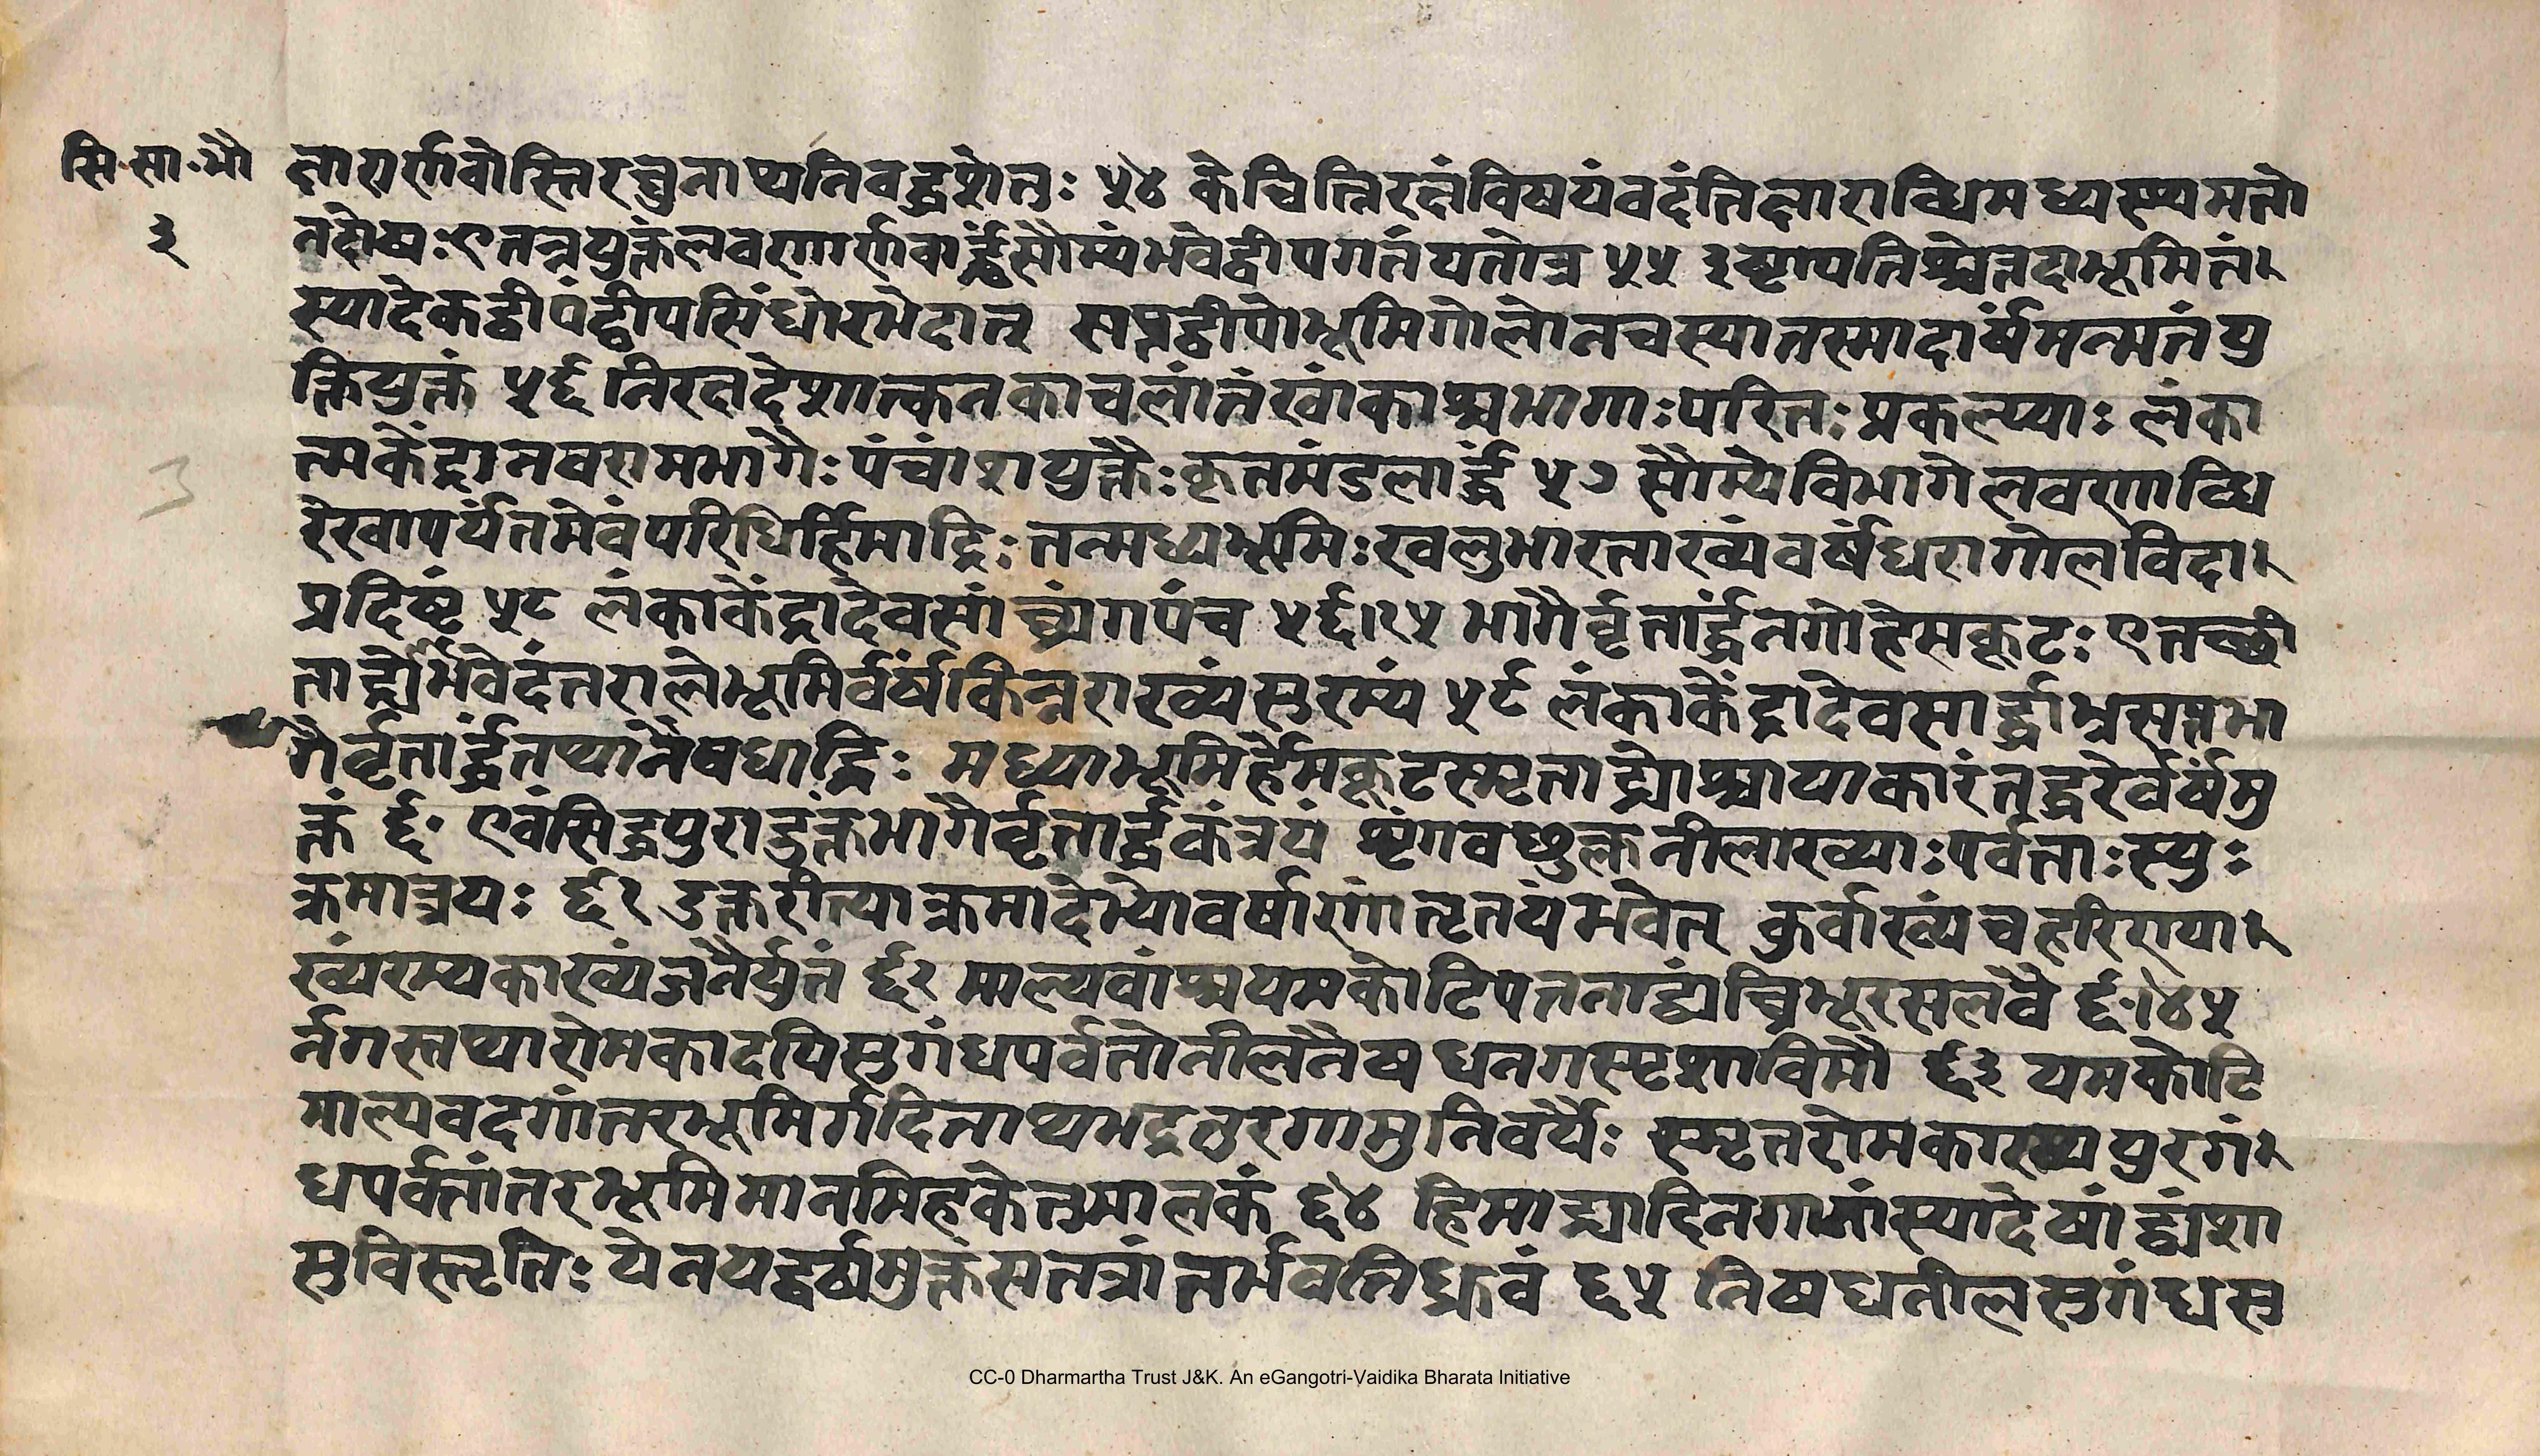 सि॰सा॰भौ
३
क्षारार्णवोस्तिरचुनाप्यनिवद्धशेतुः ५४ केचिन्निरक्षंविषयंवदंतिक्षाराब्धिमध्यस्थमतो
नदोषः एतन्नयुक्तंलवणार्णवार्द्धंसौम्यंभवेद्वीपगतंयतोत्र ५५ इष्टापतिश्चेत्तदाभूमितं
स्यादेकद्वीपंद्वीपसिंधोरभेदात् सप्तद्वीपोभूमिगोलोनचस्यात्तस्मादार्षंमन्मतंयु
क्तियुक्तं ५६ निरक्षदेशात्कनकाचलांतंखांकाश्चभागाःपरितःप्रकल्प्याः लंका
त्मकेंद्रान्नवरामभागैः पंचांशयुक्तैःकृतमंडलार्द्धं ५७ सौम्येविभागेलवणाब्धि
रेखापर्यंतमेवंपरिधिर्हिमाद्रिः तन्मध्यभूमिःखलुभारताख्यंवर्षंधरागोलविदा
प्रदिष्टं ५८ लंकाकेंद्रादेवसांघ्र्यंगपंच ५६।१५ भागैर्वृत्तार्द्धंनगोहेमकूटः एतच्छी
ताद्रेर्भवेदंतरालेभूमिर्वर्षंकिन्नराख्यंसुरम्यं ५९ लंकाकेंद्रादेवसार्द्धाभ्रसप्तभा
गैर्वृत्तार्द्धंतप्यांनैषधाद्रिः मध्याभूमिर्हेमकूटस्मृताद्र्योश्चापाकारंतद्धरेर्वर्षमु
क्तं ६० एवंसिद्धपुरादुक्तभागैर्वृत्तार्द्धकंत्रयं शृंगवच्छुक्लनीलाख्याः पर्वताः स्युः
क्रमात्त्रयः ६१ उक्तरीत्याक्रमादेभ्योवर्षाणांतृतयंभवेत् कुर्वाख्यंचहरिण्या
ख्यंरम्यकाख्यंजनैर्युतं ६२ माल्यवांश्चयमकोटिपत्तनाद्व्यंघ्रिभूरसलवै ६०।४५
र्नगस्तथारोमकादपिसुगंधपर्वतोनीलनैषधनगस्पृशाविमौ ६३ यमकोटि
माल्यवदगांतरभूमिर्गदिताथभद्रतुरगामुनिवर्यैः स्मृतरोमकाख्यपुरगं
धपर्वतांतरभूमिमानमिहकेतुमालकं ६४ हिमाद्र्यादिनगानांस्यादेषांद्व्यंशा
सुविस्तृतिः येनयद्वर्षमुक्तंसतत्रांतर्भवतिध्रुवं ६५ निषधनीलसुगंधसु
3
CC-0 Dharmartha Trust J&K. An eGangotri-Vaidika Bharata Initiative